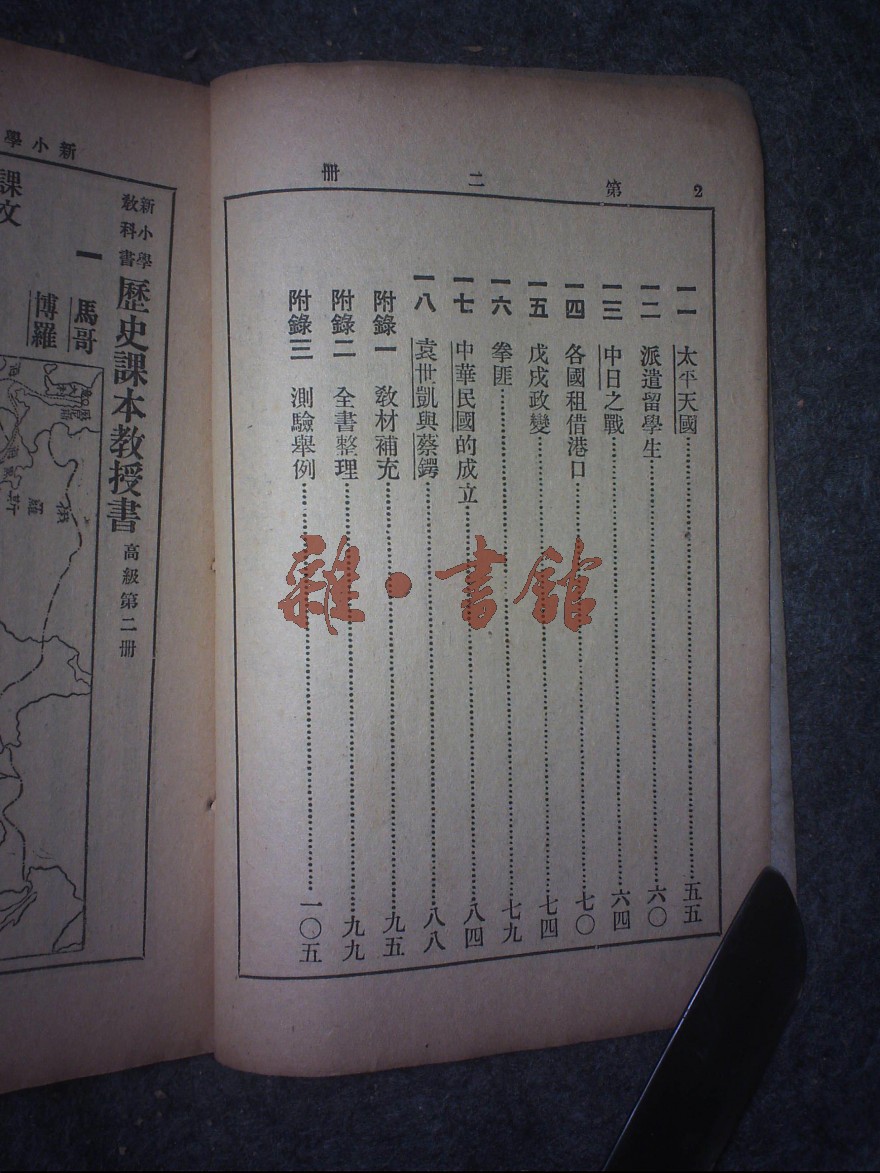 2 第二册
一一 太平天國 五五
一二 派遣留學生 六〇
一三 中日之戰 六四
一四 各國租借港口 七〇
一五 戊戌政變 七四
一六 拳匪 七九
一七 中華民國的成立 八四
一八 袁世凱與蔡鍔 八八
附錄一 教材補充 九五
附錄二 全書整理 九九
附錄三 測驗舉例 一〇五
雜·書館
新小學
新小學
教科書
歷史課本教授書 高級第二册
一 馬哥
博羅
課文
俄
羅
斯